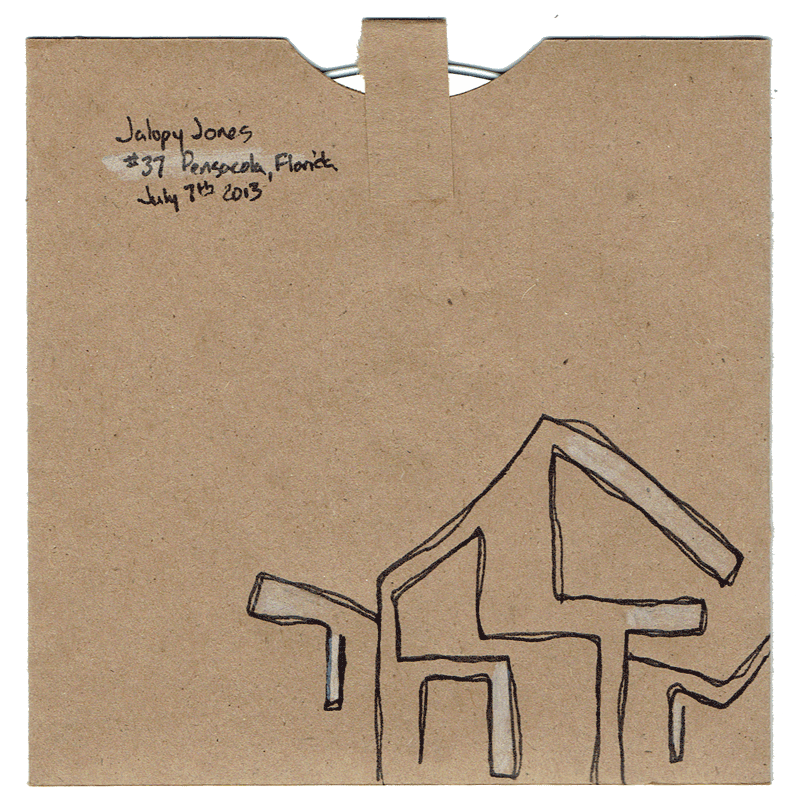 Jalopy Jones
#37 Pensacola, Florida
July 7th 2013